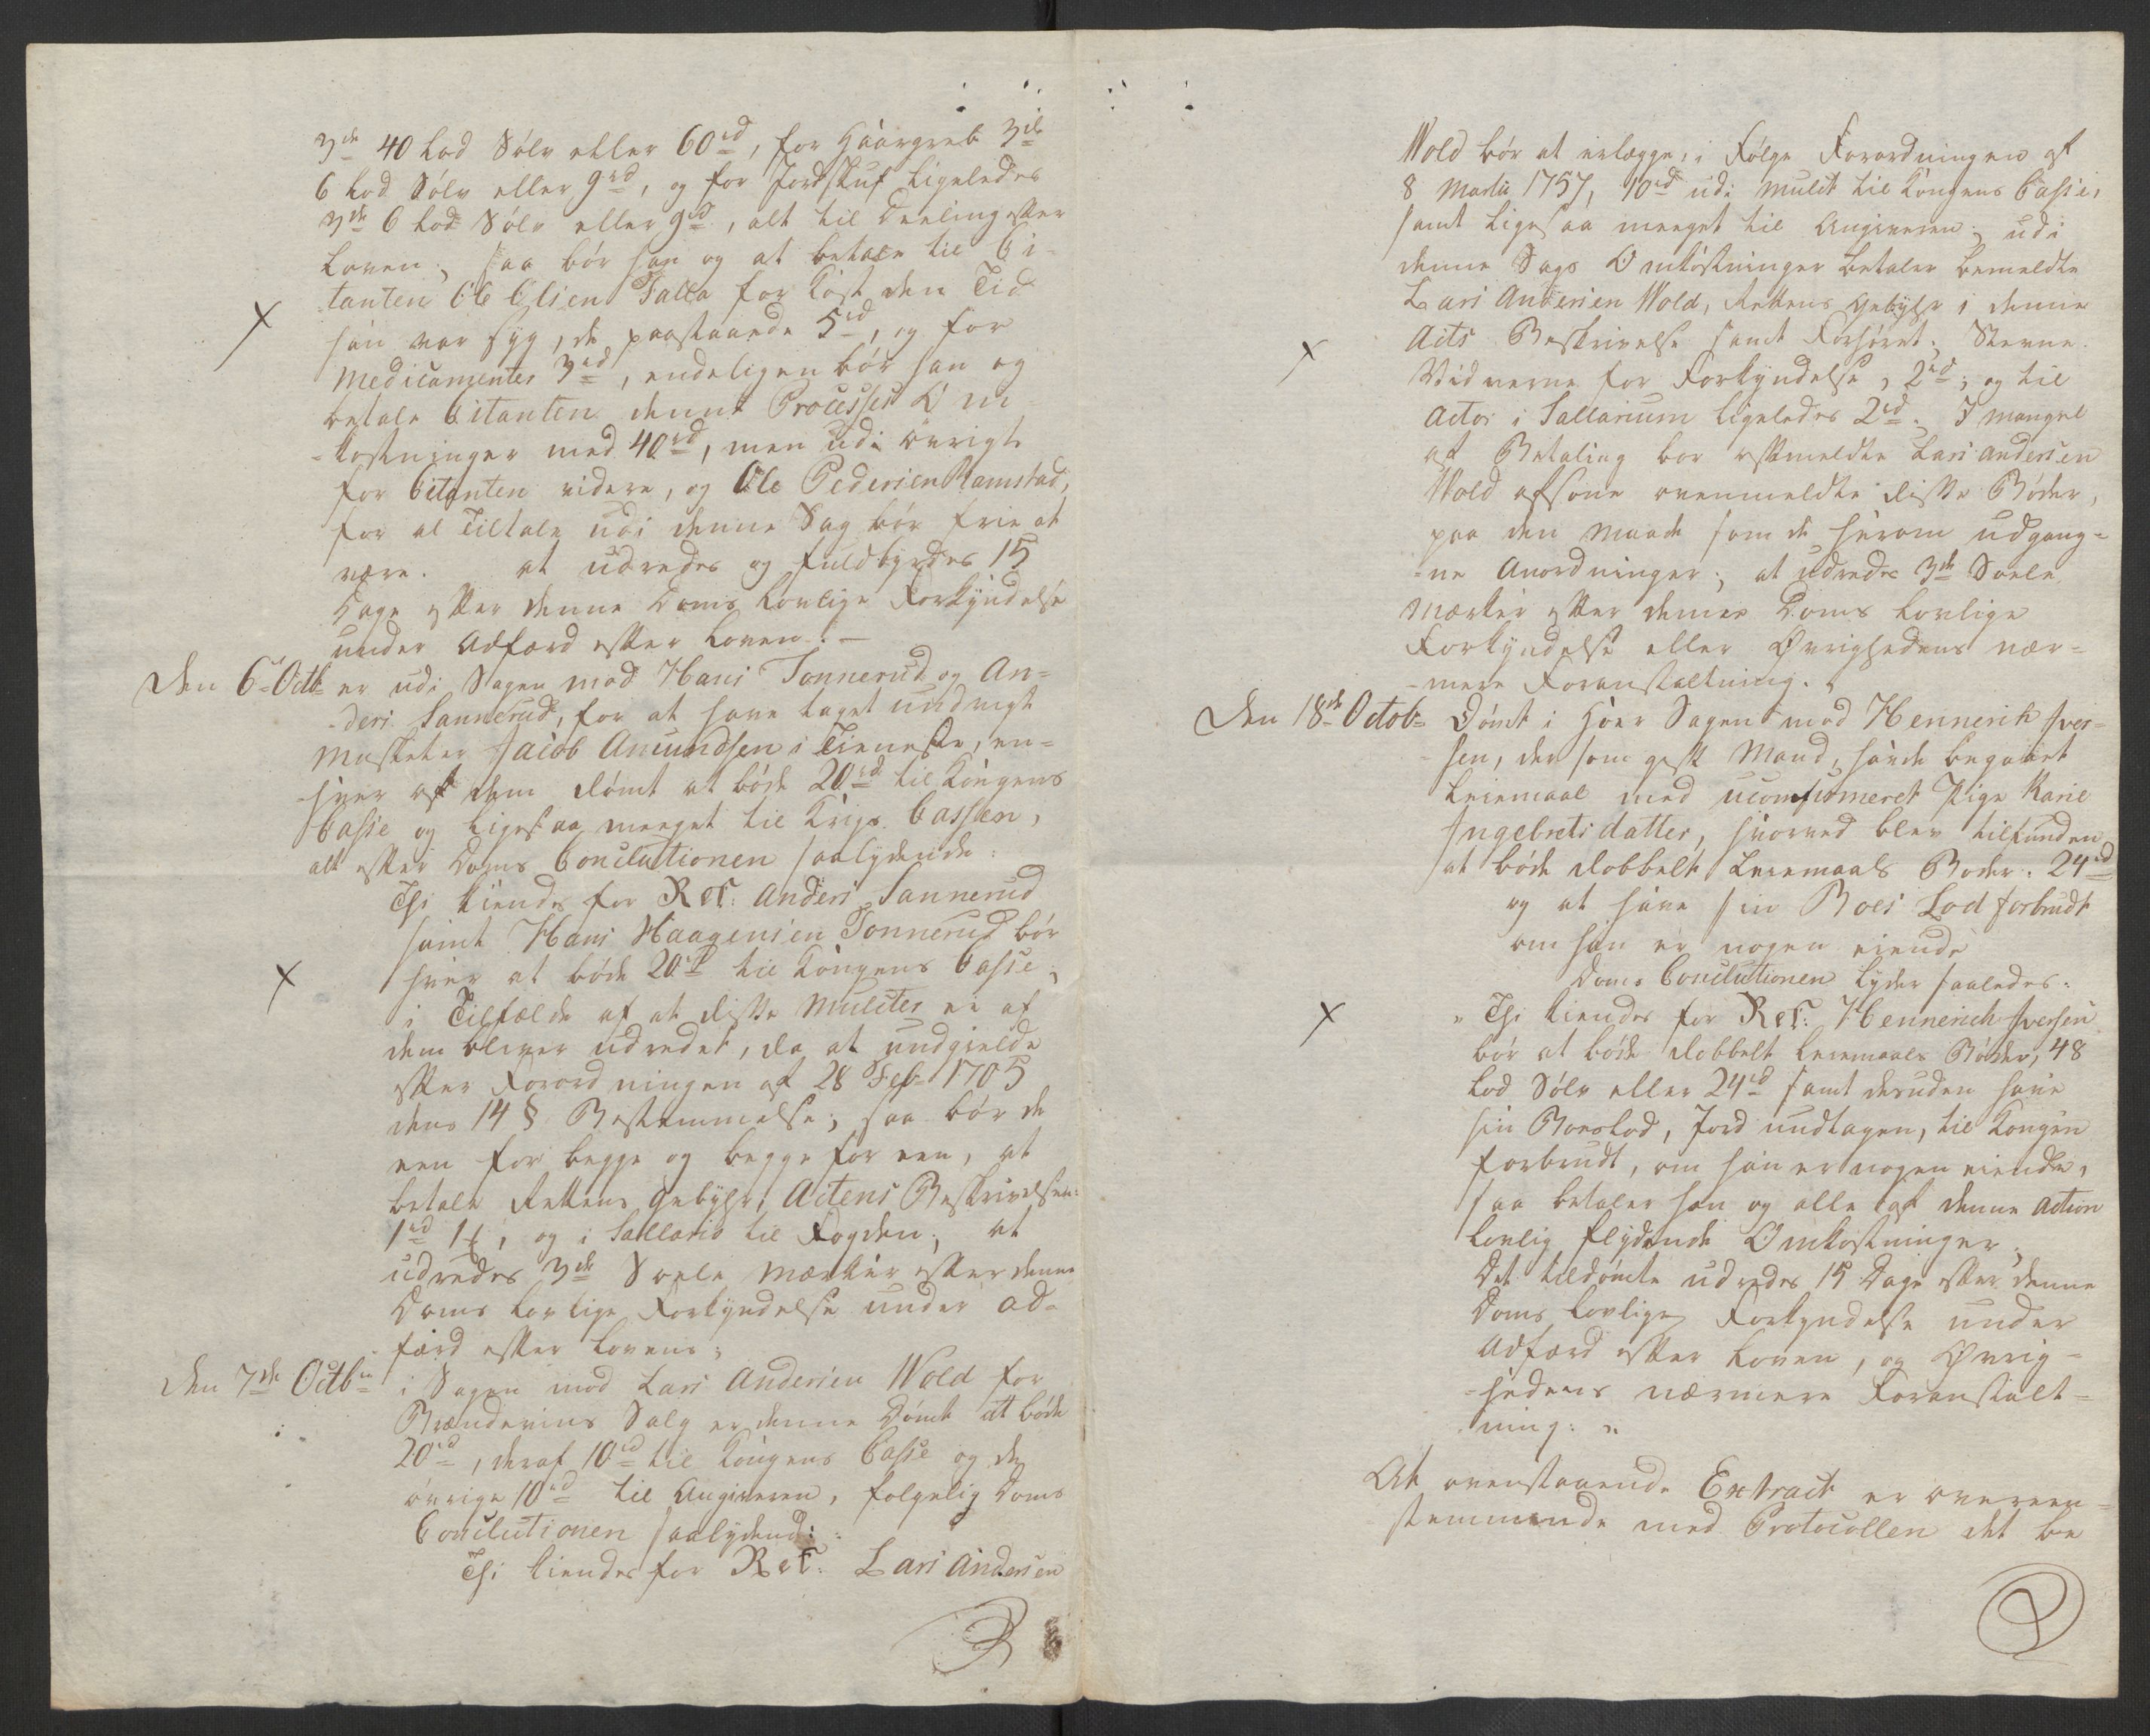 3de 40 Lod Sölv eller 60rd, for Haargreb 3de
6 Lod Sölv eller 9rd, og for Jordskuf ligeledes
3de 6 Lod Sölv eller 9rd, alt til Deeling efter
Loven; saa bör han og at betale til Ci-
tanten Ole Olsen Falla for Kost den Tid
han var syg, de paastaaede 5rd, og for
Medicamenter 3rd, endeligen bör han og
betale Citanten denne Processes Om-
-kostninger med 40rd, men udi övrigt
for Citanten videre, og Ole Pedersen Ramstad,
for al Tiltale udi denne Sag bör frie at
være. at udredes og fuldbyrdes 15
Dage efter denne Doms Lovlige Forkyndelse
under Adfærd efter Loven. —
Den 6te Octbr er udi Sagen mod Hans Tonnerud og An-
-ders Sannerud, for at have taget undvigt
Musketer Jacob Amundsen i Tieneste, en-
hver af dem dömt at böde 20rd til Kongens
Casse og ligesaa meeget til Krigs Cassen,
alt efter Doms Conclutionen saalydende:
Thi kiendes for Ret: Anders Sannerud
samt Hans Haagensen Tonnerud bör
hver at böde 20rd til Kongens Casse,
X
i Tilfælde af at disse Mulcter ei af
dem bliver udredet, da at undgielde
efter Forordningen af 28 Feb 1705
dens 14 § Bestemmelse; saa bör de
een for begge og begge for een, at
betale Rettens Gebyhr, Actens Beskrivelsen:
1rd 1, og i Sallario til Fogden; at
udredes 3de Soele Mærker efter denne
Doms Lovlige Forkyndelse under Ad-
færd efter Loven;
Den 7de Octbr i Sagen mod Lars Andersen Wold for
Brændeviins Salg er denne Dömt at böde
20rd, deraf 10rd til Kongens Casse og de
övrige 10rd til Angiveren, folgelig Doms
Conclutionen saalydende:
Thi kiendes for Ret: Lars Andersen
X
Wold bör at erlægge, i Fölge Forordningen af
8 Martii 1757, 10rd udi Mulct til Kongens Casse,
samt ligesaa meeget til Angiveren; udi
denne Sags Omkostninger betaler bemeldte
Lars Andersen Wold, Rettens Gebyhr i denne
Acts Beskrivelse samt Forhöret; Stevne
X
Vidnerne for Forkyndelse, 2rd; og til
Actor i Sallarium ligeledes 2rd. I Mangel
af Betaling bör oftmeldte Lars Andersen
Wold afsone ovenmeldte disse Böder,
paa den Maade som de herom udgang-
-ne Anordninger; at udrede 3de Soele
Mærker efter dennes Doms Lovlige
Forkyndelse eller Øvrighedens nær-
-mere Foranstaltning.
Den 18de Octob= Dömt i Hoer Sagen mod Hennerich Iver-
-sen, der som gift Mand, havde begaaet
Leiermaal med uconfirmeret Pige Karie
Ingebretsdatter, hvorved blev tilfunden
at böde dobbelt Leiermaals Böder: 24rd
og at have sin Boes Lod forbrudt
om han er nogen eiende
Doms Conclutionen lyder saaledes:
X
"Thi kiendes for Ret: Hennerich Iversen
bör at böde dobbelt Leiermaals Böder, 48
Lod Sölv eller 24rd samt desuden have
sin Boeslod, Jord undtagen, til Kongen
forbrudt, om han er nogen eiende,
saa betaler han og alle af denne Action
Lovlig flydende Omkostninger.
Det tildömte udredes 15 Dage efter denne
Doms Lovlige Forkyndelse under
Adfærd efter Loven, og Øvrig-
-hedens nærmere Foranstalt-
-ning: "
At ovenstaaende Extract er overeen-
stemmende med Protocollen det be